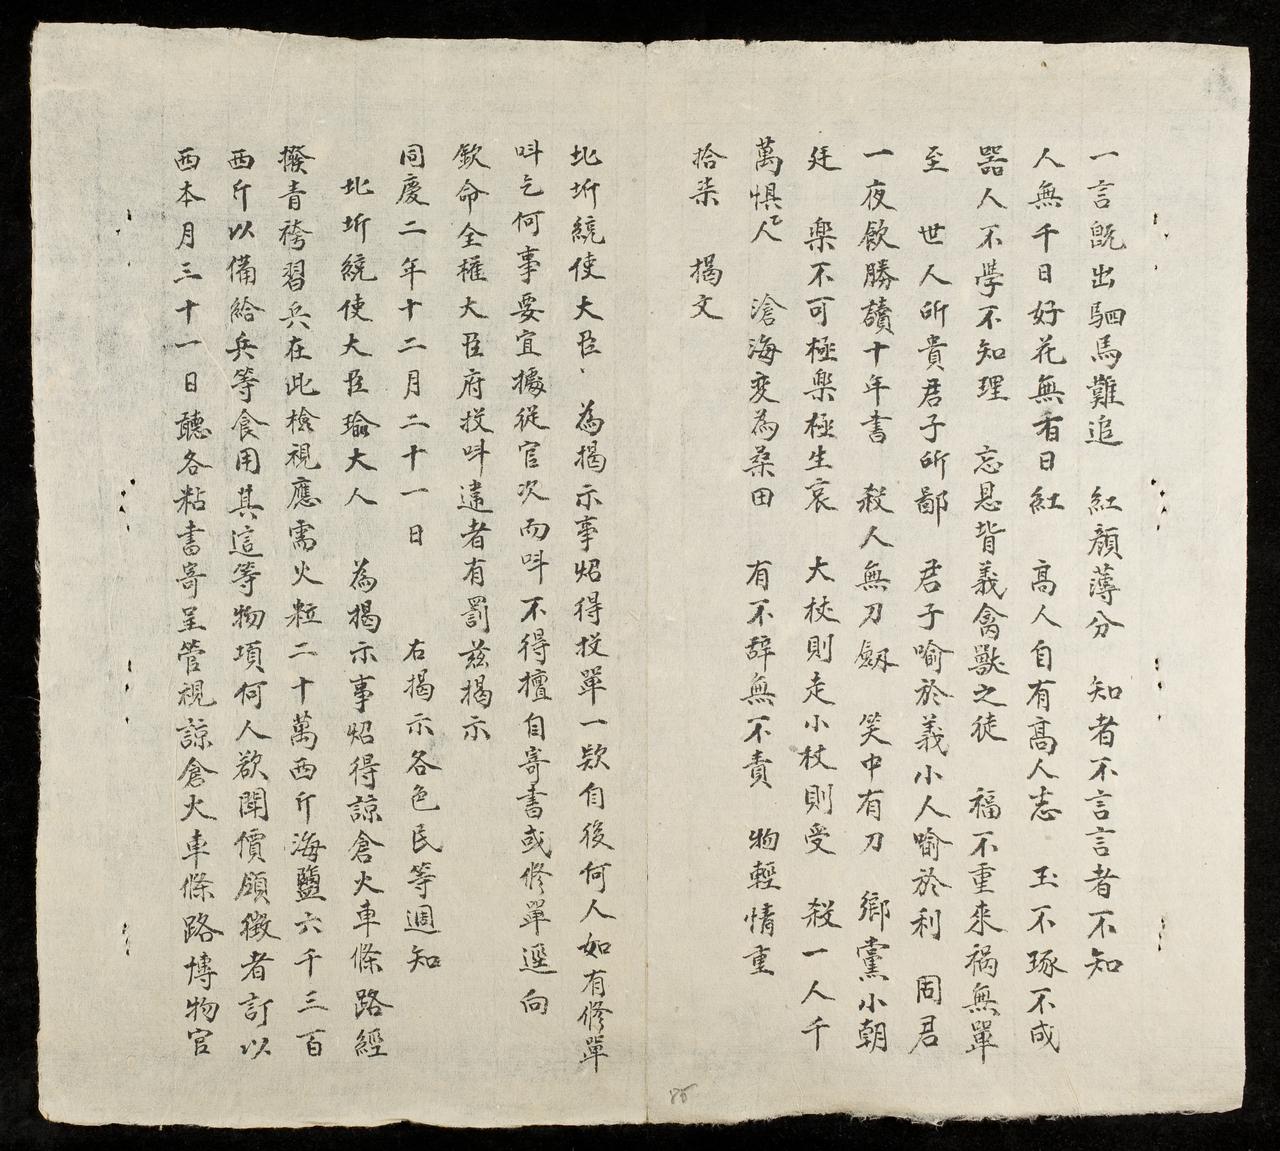 一言既出駟馬難追 紅顏薄分 知者不言言者不知
人無千日好花無百日紅 高人自有高人志 玉不琢不成
器人不學不知理 忘恩背義禽獸之徒 福不重來禍無單
至 世人所貴君子所鄙 君子喻於義小人喻於利 周君
一夜飲勝讀十年書 殺人無刀劔 笑中有刀 鄉黨小朝
廷 樂不可極樂極生哀 大杖則走小杖則受 殺一人千
萬惧人 滄海変為桑田 有不辞無不責 物輕情重
拾柒 揭文
北圻統使大臣 為揭示事炤得投單一欵自後何人如有修單
呌乞何事要宜據從官次而呌不得擅自寄書或修單逕向
欽命全權大臣府投呌違者有罰兹揭示
同慶二年十二月二十一日 右揭示各色民等週知
北圻統使大臣瑜大人 為揭示事炤得諒倉火車條路經
撥青袴習兵在此檢視應需火粒二十萬西斤海鹽六千三百
西斤以備給兵等食用其這等物項何人欲聞價領徵者訂以
西本月三十一日聽各粘書寄呈管視諒倉火車條路博物官
85